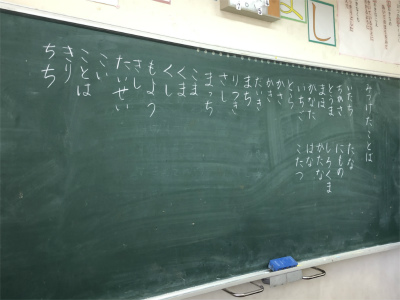 みつけたことは
いたち　たな
ちかさ　にもの
とうま　しろくま
まほ　かたな
かなた　はな
いちご　こたつ
かさ
かき
たいき
まち
りつき
さし
まっち
こま
くま
くし
もよう
さし
たいせい
こい
ことは
きり
ちち